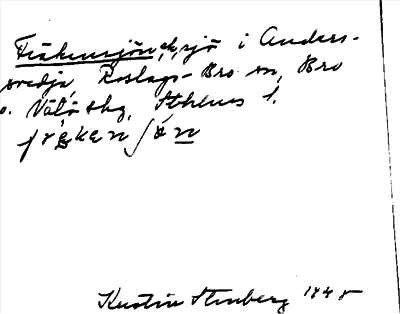 Fräkensjön, sjö i Anders-
svedja, Roslags-Bro sn, Bro
o. Vätö skg, Sthlms l.
fräken/ʃøn
Kerstin Stenberg 1948